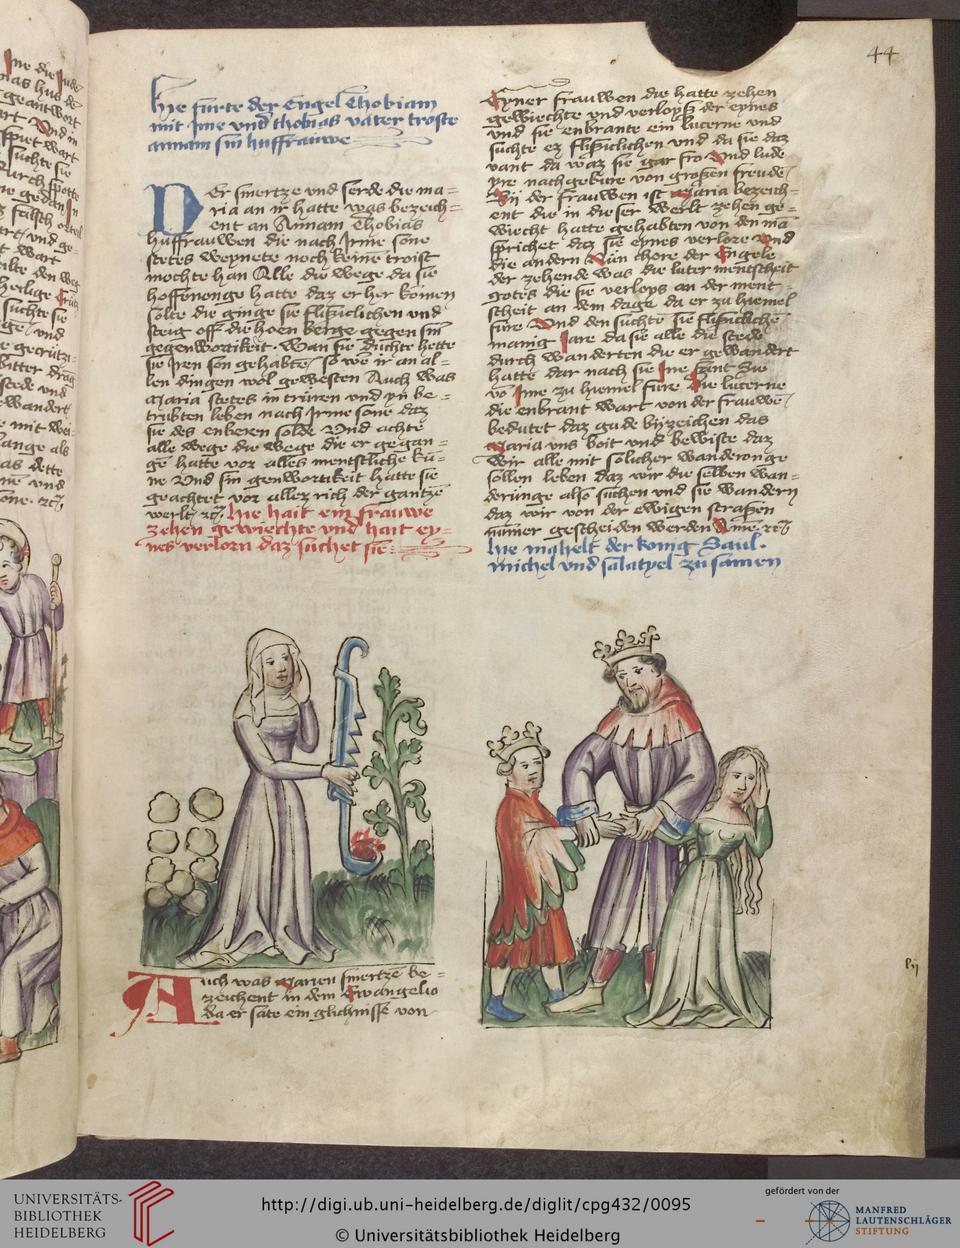 44
hie furte der Engel Thobiam
mit Jme vnd thobias vater troste
annam sin husfrauwe
Der smertze vnd serde die ma=
ria an ir hatte was bezeich=
ent an Annam Thobias
husfrauwen die nach Irme sone
stetes weynete noch keine troist
mochte han Alle die wege da sie
hoffenunge hatte daz er her komen
solte die ginge sie flißiclichen vnd
steig off die hoen berge gegen sin
gegenwortikeit. Wan sie duchte hette
sie Iren son gehabt so wer ir an al=
len dingen wol gewesten Auch was
Maria stetes in truren vnd yn be=
trubten leben nach Irme sone daz
sie des enberen solde Vnd achte
alle wege die wege die er gegan=
ge hatte vor alles mentstliche ku=
ne Vnd sin genwortikeit hatte sie
geachtet vor aller rich der gantze
werlt rc. hie hait ein frauwe
zehen gewiechte vnd hait ey=
nes verlorn daz suchet sie
Auch was Marien smertze be=
zeichent in dem Ewangelio
da er sate ein glichnisse von
Eyner frauwen die hatte zehen
gewiechte vnd verlopß der eynes
vnd sie enbrante ein lucerne vnd
suchte ez flißiclichen vnd da sie daz
vant da waz sie gar fro Vnd lude
yre nachgebure von großen freude
By der frauwen ist Maria bezeich=
ent die in dieser werlt zehen ge=
wiecht hatte gehabten von den ma
sprichet daz sie eynes verlore Vnd
die andern Nun chore der Engele
der zehende was die luter mentscheit
gotes die sie verlops an der ment=
scheit an dem dage da er zu hiemel
fure Vnd den suchte sie flißicliche
manig Jare da sie alle die stede
durch wanderten die er gewandert
hatte dar nach sie Jne sant Sie
vo Jme zu hiemel fure Die lucerne
die enbrant wart von der frauwe
bedutet daz gude byzeichen das
Maria vns boit vnd bewiste daz
wir alle mit solicher wanderonge
sollen leben daz wir die selben wan=
derunge also suchen vnd sie wandern
daz wir von der ewigen straßen
nummer gescheiden werden Ame rc.
hie mahelt der konig Saul.
michel vnd salatyel zu samen
UNIVERSITÄTS-
BIBLIOTHEK
HEIDELBERG
http://digi.ub.uni-heidelberg.de/diglit/cpg432/0095
© Universitätsbibliothek Heidelberg
gefördert von der
MANFRED
LAUTENSCHLÄGER
STIFTUNG